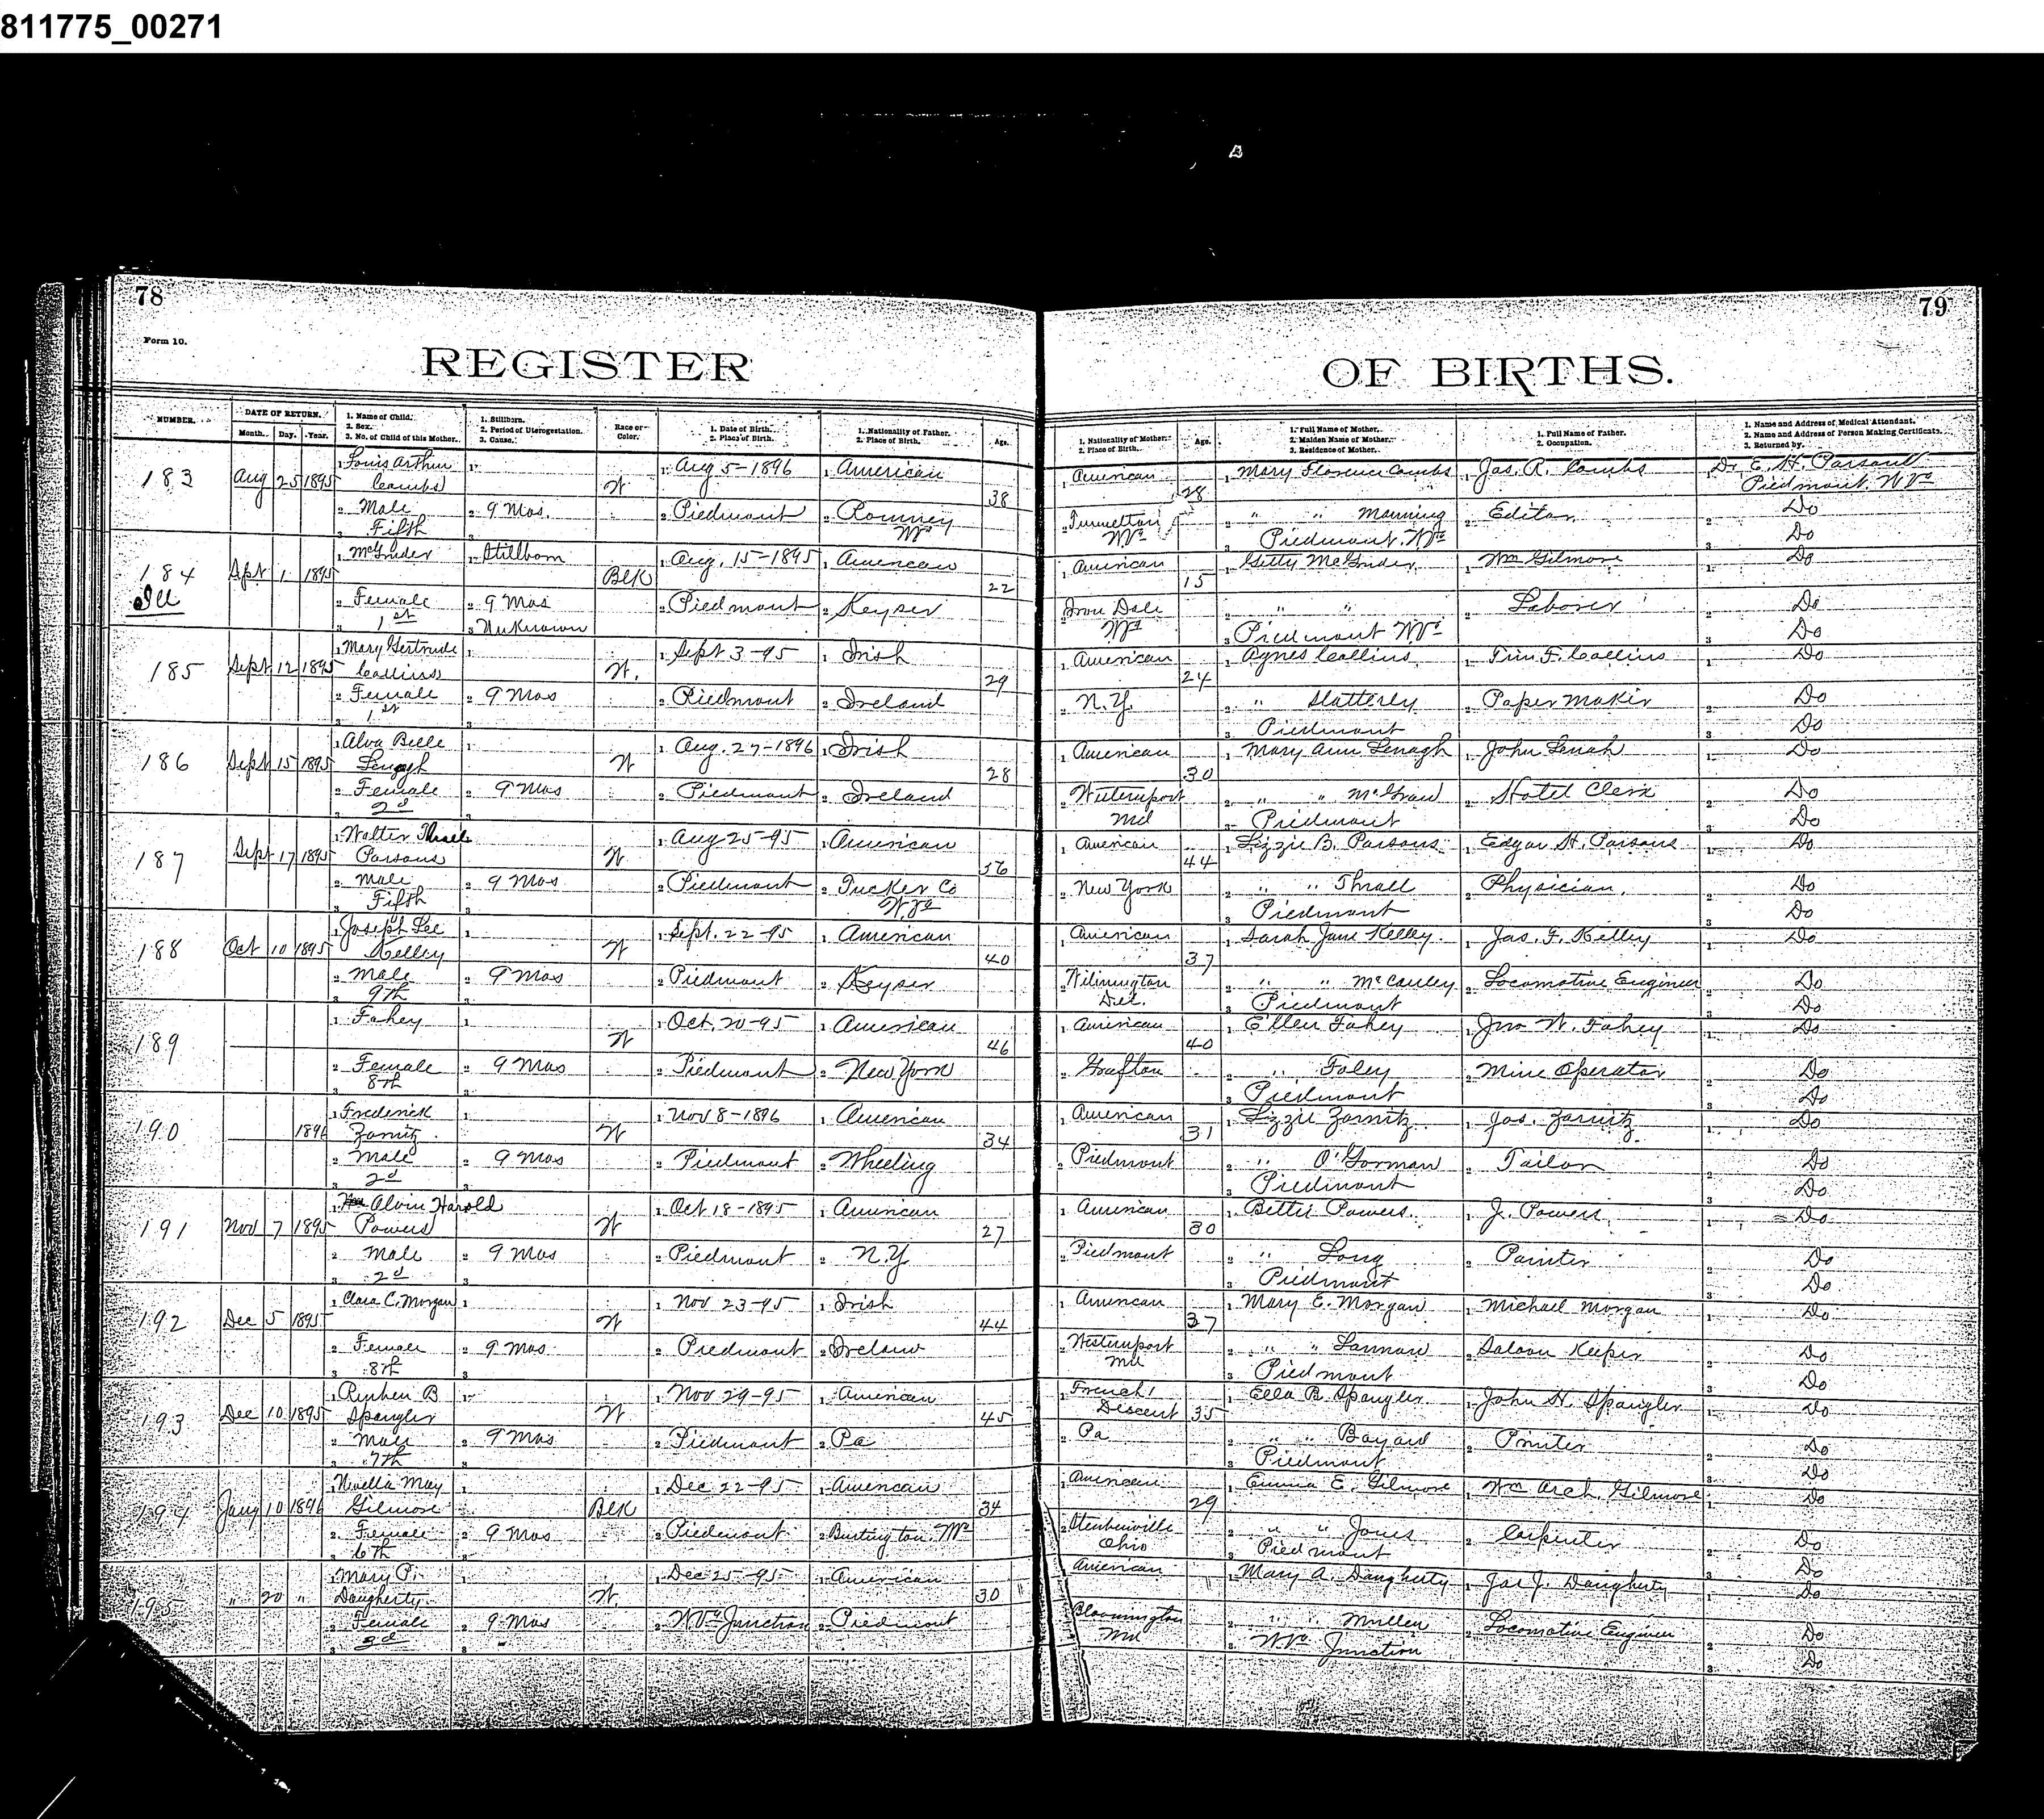 811775_00271
78
79
Form 10.
REGISTER
OF BIRTHS.
NUMBER.
DATE OF RETURN.
Month. Day. Year.
1. Name of Child.
2. Sex.
3. No. of Child of this Mother.
1. Stillborn.
2. Period of Uterogestation.
3. Cause.
Race or Color.
1. Date of Birth.
2. Place of Birth.
1. Nationality of Father.
2. Place of Birth.
Age.
1. Nationality of Mother.
2. Place of Birth.
Age.
1. Full Name of Mother.
2. Maiden Name of Mother.
3. Residence of Mother.
1. Full Name of Father.
2. Occupation.
1. Name and Address of Medical Attendant.
2. Name and Address of Person Making Certificate.
3. Returned by.
183 Aug 25 1895 1. Louis Arthur Combs 1. W 1. Aug 5-1896 1. American 38 1. American 28 1. Mary Florence Combs 1. Jas. R. Combs 1. Dr. E. H. Parsons Piedmont, W Va
2. Male 2. 9 Mos. 2. Piedmont 2. Romney W Va 2. Tunnelton W Va 2. " " Manning 2. Editor 2. Do
3. Fifth 3. Piedmont, W Va 3. Do
184 Ill Sept 1 1895 1. McGruder 1. Stillborn Blk 1. Aug. 15-1895 1. American 22 1. American 15 1. Getty McGruder 1. Wm Gilmore 1. Do
2. Female 2. 9 Mos 2. Piedmont 2. Keyser 2. Iron Dale W Va 2. " " 2. Laborer 2. Do
3. 1st 3. Unknown 3. Piedmont W Va 3. Do
185 Sept 12 1895 1. Mary Gertrude Collins 1. W. 1. Sept 3-95 1. Irish 29 1. American 24 1. Agnes Collins 1. Tim F. Collins 1. Do
2. Female 2. 9 Mos 2. Piedmont 2. Ireland 2. N.Y. 2. " Slatterly 2. Paper Maker 2. Do
3. 1st 3. Piedmont 3. Do
186 Sept 15 1895 1. Alva Belle Lenagh 1. W 1. Aug. 27-1896 1. Irish 28 1. American 30 1. Mary Ann Lenagh 1. John Lenah 1. Do
2. Female 2. 9 Mos 2. Piedmont 2. Ireland 2. Westernport Md 2. " " McGraw 2. Hotel Clerk 2. Do
3. 2d 3. Piedmont 3. Do
187 Sept 17 1895 1. Walter Thrall Parsons W 1. Aug 25-95 1. American 56 1. American 44 1. Lizzie B. Parsons 1. Edgar H. Parsons 1. Do
2. Male 2. 9 Mos 2. Piedmont 2. Tucker Co W Va 2. New York 2. " " Thrall 2. Physician. 2. Do
3. Fifth 3. Piedmont 3. Do
188 Oct 10 1895 1. Joseph Lee Kelley 1. W 1. Sept. 22-95 1. American 40 1. American 37 1. Sarah Jane Kelley. 1. Jas. F. Kelley 1. Do
2. Male 2. 9 Mos 2. Piedmont 2. Keyser 2. Wilmington Del. 2. " " McCauley 2. Locomotive Engineer 2. Do
3. 9th 3. Piedmont 3. Do
189 1. Fahey 1. W 1. Oct. 20-95 1. American 46 1. American 40 1. Ellen Fahey 1. Jno W. Fahey 1. Do
2. Female 2. 9 Mos 2. Piedmont 2. New York 2. Grafton 2. " Foley 2. Mine Operator 2. Do
3. 8th 3. Piedmont 3. Do
190 1896 1. Frederick Zarnitz 1. W 1. Nov 8-1896 1. American 34 1. American 31 1. Lizzie Zarnitz 1. Jas. Zarnitz 1. Do
2. Male 2. 9 Mos 2. Piedmont 2. Wheeling 2. Piedmont 2. " O'Gorman 2. Tailor 2. Do
3. 2d 3. Piedmont 3. Do
191 Nov 7 1895 1. Alvin Harold Powers W 1. Oct 18-1895 1. American 27 1. American 30 1. Bettie Powers 1. J. Powers 1. Do
2. Male 2. 9 Mos 2. Piedmont 2. N.Y 2. Piedmont 2. " Long 2. Painter 2. Do
3. 2d 3. Piedmont 3. Do
192 Dec 5 1895 1. Clara C. Morgan 1. W 1. Nov 23-95 1. Irish 44 1. American 37 1. Mary E. Morgan 1. Michael Morgan 1. Do
2. Female 2. 9 Mos 2. Piedmont 2. Ireland 2. Westernport Md 2. " " Lannon 2. Saloon Keeper 2. Do
3. 8th 3. Piedmont 3. Do
193 Dec 10 1895 1. Reuben B Spangler 1. W 1. Nov 29-95 1. American 45 1. French Descent 35 1. Ella B. Spangler 1. John H. Spangler 1. Do
2. Male 2. 9 Mos 2. Piedmont 2. Pa 2. Pa 2. " " Bayard 2. Printer 2. Do
3. 7th 3. Piedmont 3. Do
194 Jany 10 1896 1. Novella May Gilmore 1. Blk 1. Dec 22-95 1. American 34 1. American 29 1. Emma E. Gilmore 1. Wm Arch. Gilmore 1. Do
2. Female 2. 9 Mos 2. Piedmont 2. Burlington, W Va 2. Steubenville Ohio 2. " " Jones 2. Carpenter 2. Do
3. 6th 3. Piedmont 3. Do
195 " 20 " 1. Mary P. Daugherty 1. W. 1. Dec 25-95 1. American 30 " 1. American " 1. Mary A. Daugherty 1. Jas J. Daugherty 1. Do
2. Female 2. 9 Mos 2. W. Va Junction 2. Piedmont 2. Bloomington Md 2. " " Mullen 2. Locomotive Engineer 2. Do
3. 3d 3. W. Va Junction 3. Do